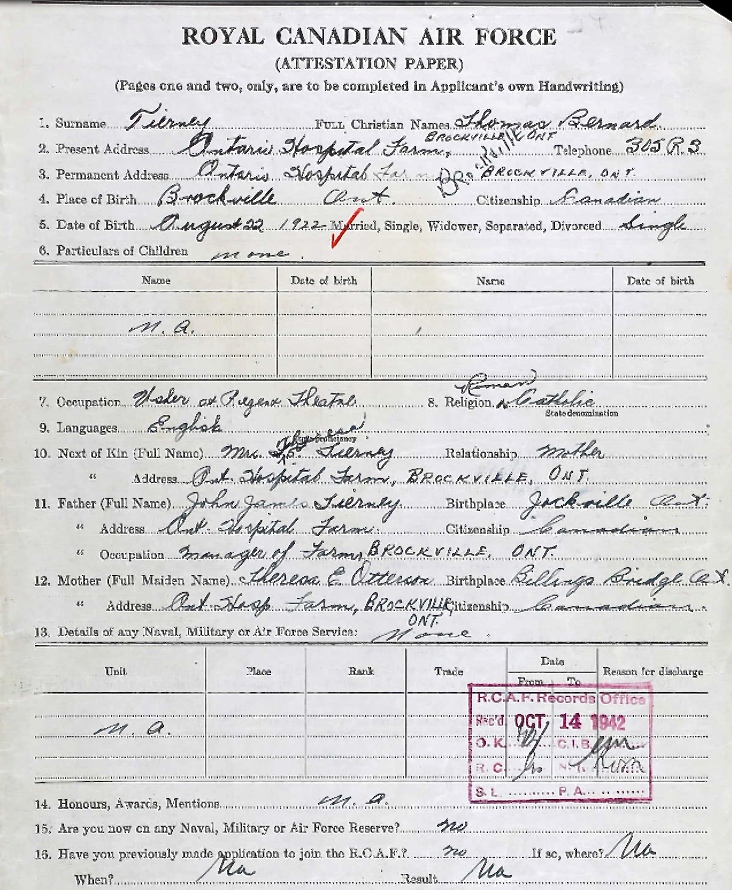 ROYAL CANADIAN AIR FORCE
(ATTESTATION PAPER)
(Pages one and two, only, are to be completed in Applicant's own Handwriting)
1. Surname Tierney Full Christian Names Thomas Bernard.
BROCKVILLE, ONT
2. Present Address Ontario Hospital Farm, Telephone 305 R.3
3. Permanent Address Ontario Hospital Farm BROCKVILLE BROCKVILLE, ONT.
4. Place of Birth Brockville Ont. Citizenship Canadian
5. Date of Birth August 22 1922 Married, Single, Widower, Separated, Divorced Single
6. Particulars of Children none.
Name Date of birth Name Date of birth
N. A.
7. Occupation Usher at Regent Theatre 8. Religion Roman Catholic
State denomination
9. Languages English
State proficiency
10. Next of Kin (Full Name) Mrs. Tierney Relationship Mother
" Address Ont. Hospital Farm, BROCKVILLE, ONT.
11. Father (Full Name) John James Tierney Birthplace Ont.
" Address Ont. Hospital Farm. Citizenship Canadian
" Occupation Manager of Farm, BROCKVILLE, ONT.
12. Mother (Full Maiden Name) Theresa E. Otterson Birthplace Billings Bridge Ont.
" Address Ont. Hosp Farm, BROCKVILLE, ONT. Citizenship Canadian.
13. Details of any Naval, Military or Air Force Service: None.
Unit Place Rank Trade Date Reason for discharge
From To
N. A.
R.C.A.F. Records Office
Rec'd. OCT. 14 1942
O.K. C.I.B.
R.C.
S.L. P.A.
14. Honours, Awards, Mentions N. A.
15. Are you now on any Naval, Military or Air Force Reserve? no
16. Have you previously made application to join the R.C.A.F.? no If so, where? Na
When? Na Result Na